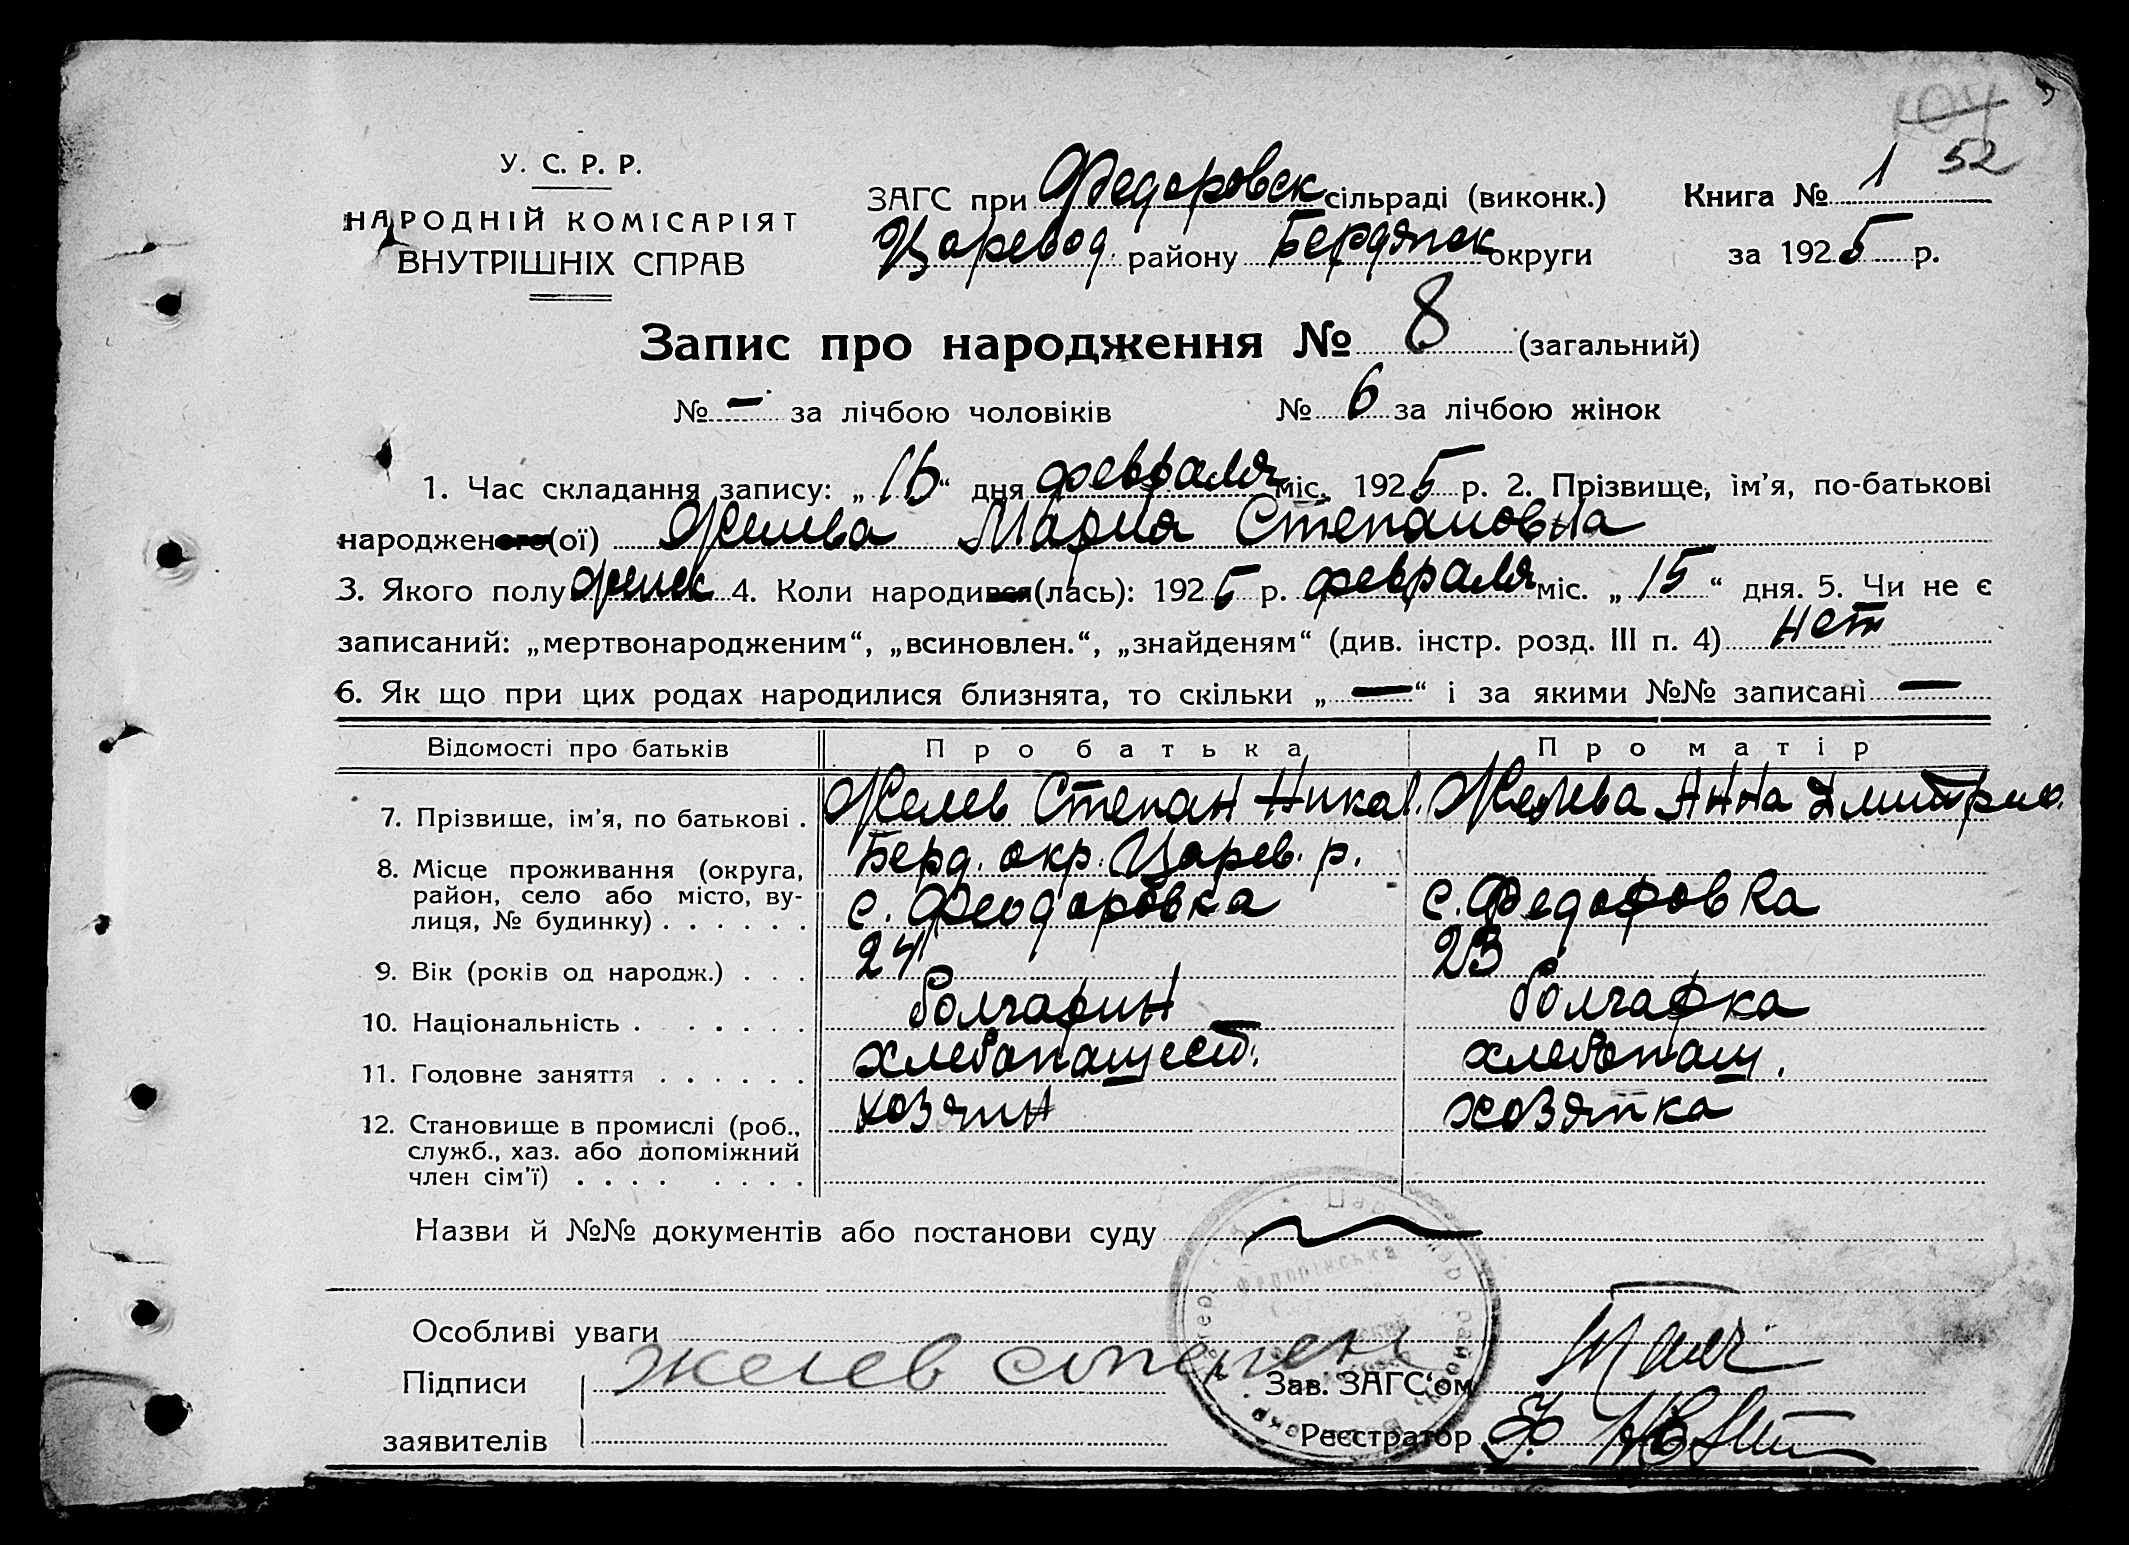 104
52
У. С. Р. Р.
НАРОДНІЙ КОМІСАРІЯТ
ВНУТРІШНІХ СПРАВ
ЗАГС при Федоровск сільраді (виконк.) Книга № 1
Царевод. району Бердянск округи за 1925 р.
Запис про народження № 8 (загальний)
№ — за лічбою чоловіків № 6 за лічбою жінок
1. Час складання запису: „15“ дня февраля міс. 1925 р. 2. Прізвище, ім’я, по-батькові
народженого(ої) Желева Мария Степановна
3. Якого полу женск 4. Коли народився(лась): 1925 р. февраля міс. „15“ дня. 5. Чи не є
записаний: „мертвонародженим“, „всиновлен.“, „знайденям“ (див. інстр. розд. III п. 4) нет
6. Як що при цих родах народилися близнята, то скільки „—“ і за якими №№ записані —
Відомості про батьків Про батька Про матір
7. Прізвище, ім’я, по батькові . Желев Степан Никол. Желева Анна Дмитрио.
8. Місце проживання (округа, район, село або місто, вулиця, № будинку) . . . . . . Берд. окр. Царев. р.
с. Феодоровка с. Федоровка
9. Вік (років од народж.) . . . 24 23
10. Національність . . . . . . болгарин болгарка
11. Головне заняття . . . . . . хлебопашест. хлебопаш.
12. Становище в промислі (роб., служб., хаз. або допоміжний член сім’ї) . . . . . . . . хозяин хозяйка
Назви й №№ документів або постанови суду
Особливі уваги
Підписи желев степан Зав. ЗАГС‘ом
заявителів Реєстратор